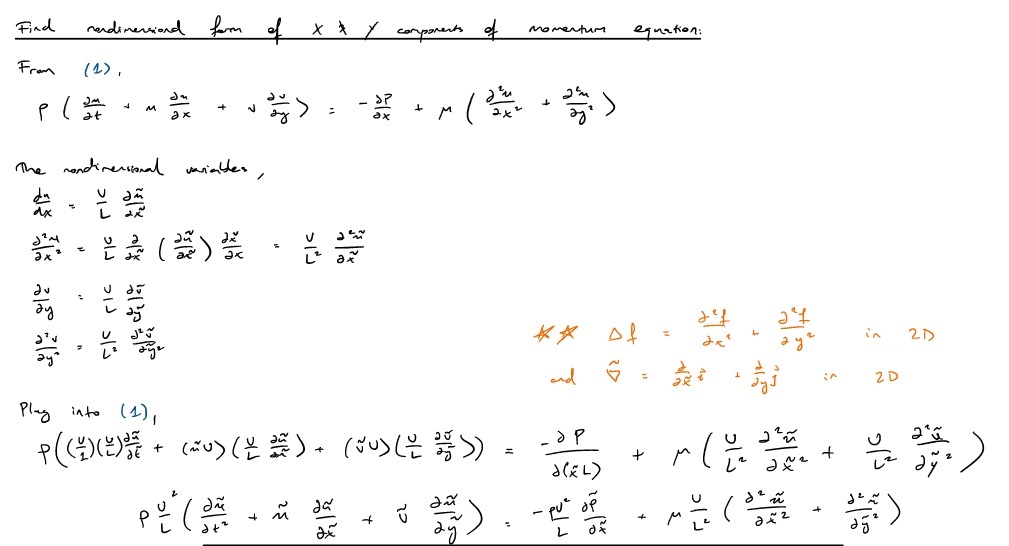 Find nondimensional form of x & y components of momentum equation:
From (1),
ρ ( ∂u/∂t + u ∂u/∂x + v ∂v/∂y ) = -∂P/∂x + μ ( ∂²u/∂x² + ∂²u/∂y² )
The nondimensional variables,
du/dx = U/L ∂ũ/∂x̃
∂²u/∂x² = U/L ∂/∂x̃ ( ∂ũ/∂x̃ ) ∂x̃/∂x = U/L² ∂²ũ/∂x̃
∂v/∂y = U/L ∂ṽ/∂ỹ
∂²v/∂y² = U/L² ∂²ṽ/∂ỹ²
** Δf = ∂²f/∂x² + ∂²f/∂y² in 2D
and ∇̃ = ∂/∂x̃ i + ∂/∂y j in 2D
Plug into (1),
ρ((U/1)(U/L)∂ũ/∂t̃ + (ũU)(U/L ∂ũ/∂x̃) + (ṽU)(U/L ∂ṽ/∂ỹ)) = -∂P/∂(x̃L) + μ ( U/L² ∂²ũ/∂x̃² + U/L² ∂²ũ/∂ỹ² )
ρ U²/L ( ∂ũ/∂t² + ũ ∂ũ/∂x̃ + ṽ ∂ũ/∂ỹ ) = -ρU²/L ∂P̃/∂x̃ + μ U/L² ( ∂²ũ/∂x̃² + ∂²ũ/∂ỹ² )